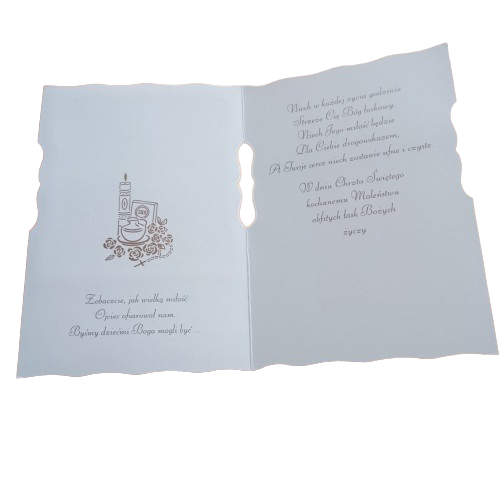 Zobaczcie, jak wielką miłość
Ojciec ofiarował nam.
Byśmy dziećmi Boga mogli być ...
Niech w każdej życia godzinie
Strzeże Cię Bóg łaskawy.
Niech Jego miłość będzie
Dla Ciebie drogowskazem,
A Twoje serce niech zostanie ufne i czyste.
W dniu Chrztu Świętego
kochanemu Maleństwu
obfitych łask Bożych
życzy